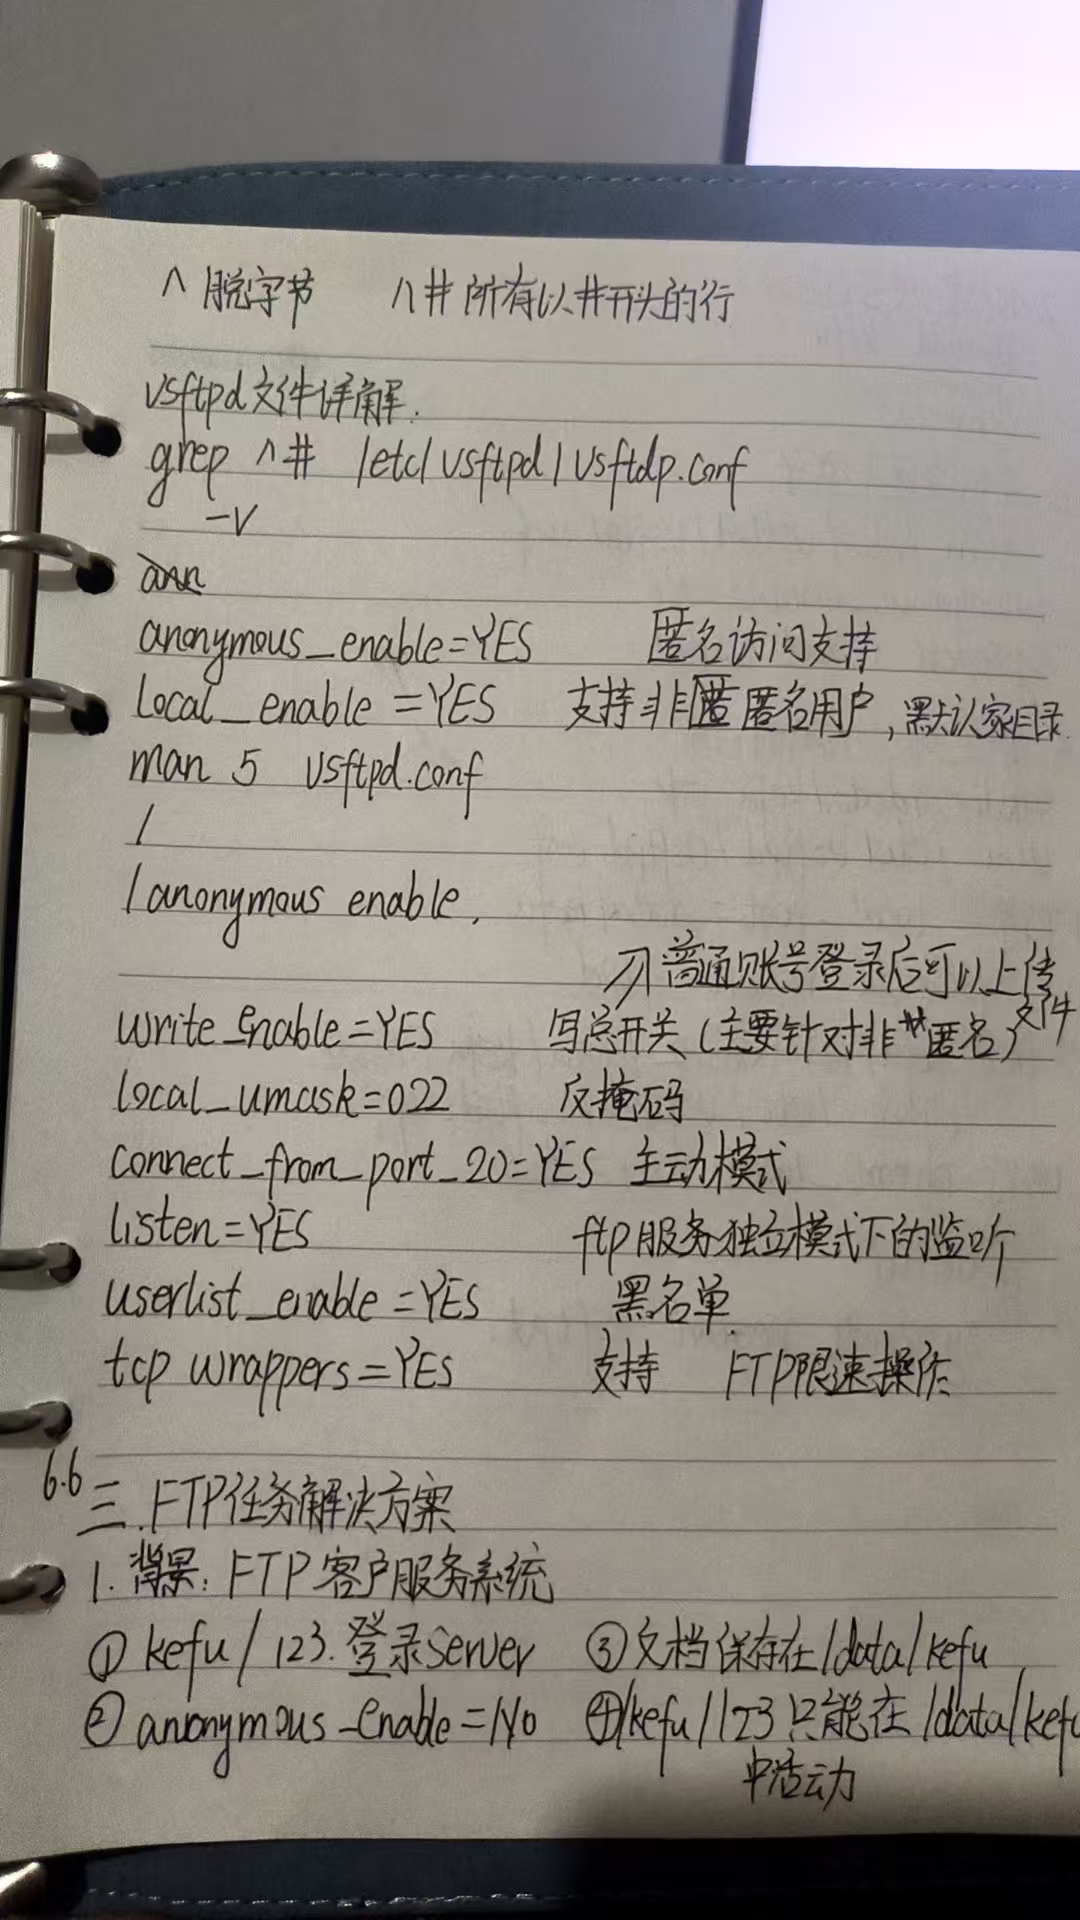 ^ 脱字节 ^# 所有以#开头的行
vsftpd文件详解.
grep ^# /etc/vsftpd/vsftdp.conf
-v
anonymous_enable=YES 匿名访问支持
local_enable=YES 支持非匿名用户,默认家目录.
man 5 vsftpd.conf
/
/anonymous enable.
普通账号登录后可以上传文件
write_enable=YES 写总开关(主要针对非匿名)
local_umask=022 反掩码
connect_from_port_20=YES 主动模式
listen=YES ftp服务独立模式下的监听
userlist_enable=YES 黑名单.
tcp wrappers=YES 支持 FTP限速操作
6.6
三.FTP任务解决方案
1.背景: FTP客户服务系统
① kefu/123.登录server ③文档保存在/data/kefu
② anonymous_enable=No ④kefu/123只能在/data/kefu
中活动